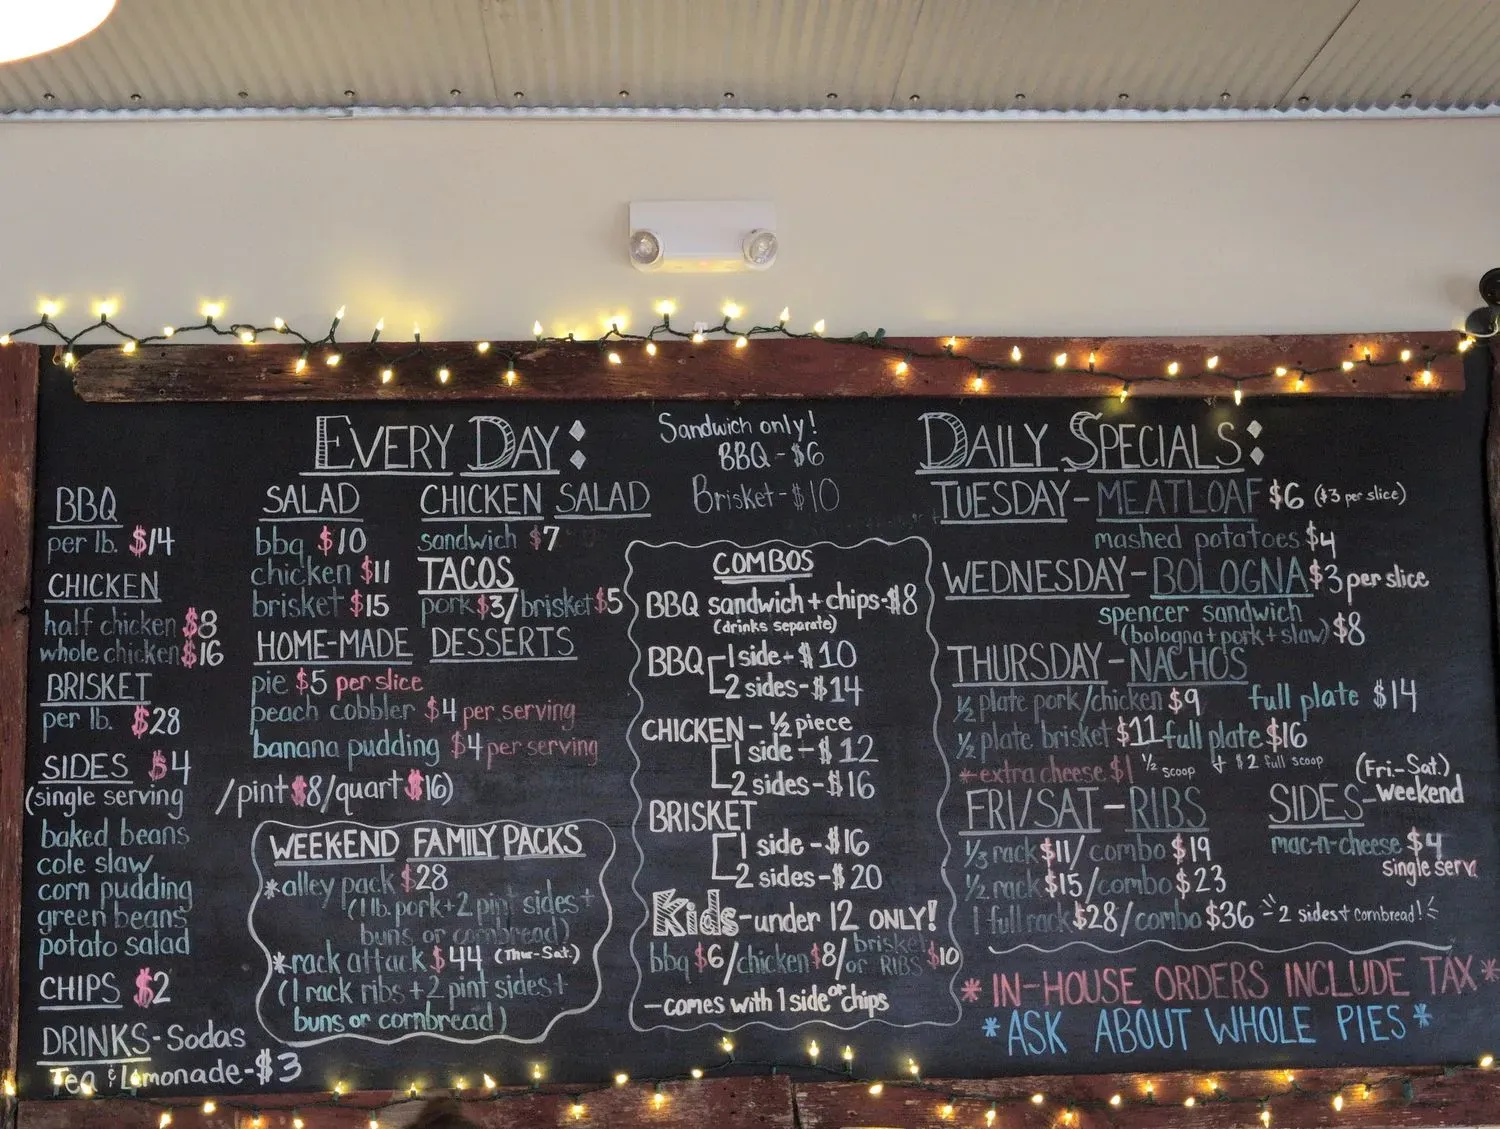 EVERY DAY:
BBQ
per lb. $14
CHICKEN
half chicken $8
whole chicken $16
BRISKET
per lb. $28
SIDES $4
(single serving /pint $8/quart $16)
baked beans
cole slaw
corn pudding
green beans
potato salad
CHIPS $2
DRINKS-Sodas
Tea & Lemonade-$3
SALAD
bbq $10
chicken $11
brisket $15
CHICKEN SALAD
sandwich $7
TACOS
pork $3/brisket $5
HOME-MADE DESSERTS
pie $5 per slice
peach cobbler $4 per serving
banana pudding $4 per serving
WEEKEND FAMILY PACKS
*alley pack $28
(1 lb. pork+2 pint sides+
buns or cornbread)
*rack attack $44 (Thur-Sat.)
(1 rack ribs+2 pint sides+
buns or cornbread)
Sandwich only!
BBQ-$6
Brisket-$10
COMBOS
BBQ sandwich+chips-$8
(drinks separate)
BBQ 1 side-$10
2 sides-$14
CHICKEN-½ piece
1 side-$12
2 sides-$16
BRISKET
1 side-$16
2 sides-$20
Kids-under 12 ONLY!
bbq $6/chicken $8/brisket or RIBS $10
-comes with 1 side or chips
DAILY SPECIALS:
TUESDAY-MEATLOAF $6 ($3 per slice)
mashed potatoes $4
WEDNESDAY-BOLOGNA $3 per slice
spencer sandwich
(bologna+pork+slaw) $8
THURSDAY-NACHOS
½ plate pork/chicken $9 full plate $14
½ plate brisket $11 full plate $16
*extra cheese $1 ½ scoop + $2 full scoop
FRI/SAT-RIBS
⅓ rack $11/combo $19
½ rack $15/combo $23
1 full rack $28/combo $36 2 sides+cornbread!
SIDES-(Fri.-Sat.) weekend
mac-n-cheese $4
single serv.
*IN-HOUSE ORDERS INCLUDE TAX*
*ASK ABOUT WHOLE PIES*